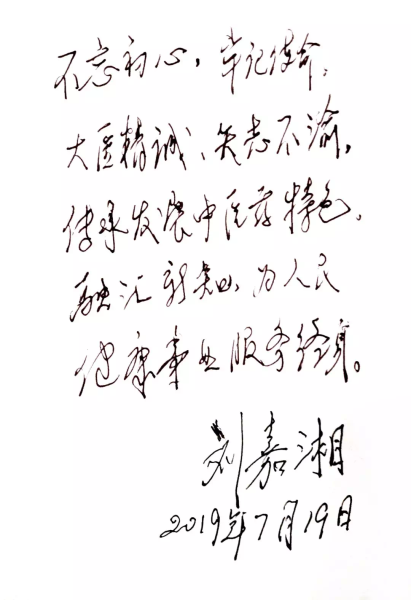 不忘初心，牢记使命，
大医精诚、矢志不渝。
传承发展中医药特色，
融汇新知，为人民
健康事业服务终身。
刘嘉湘
2019年7月19日